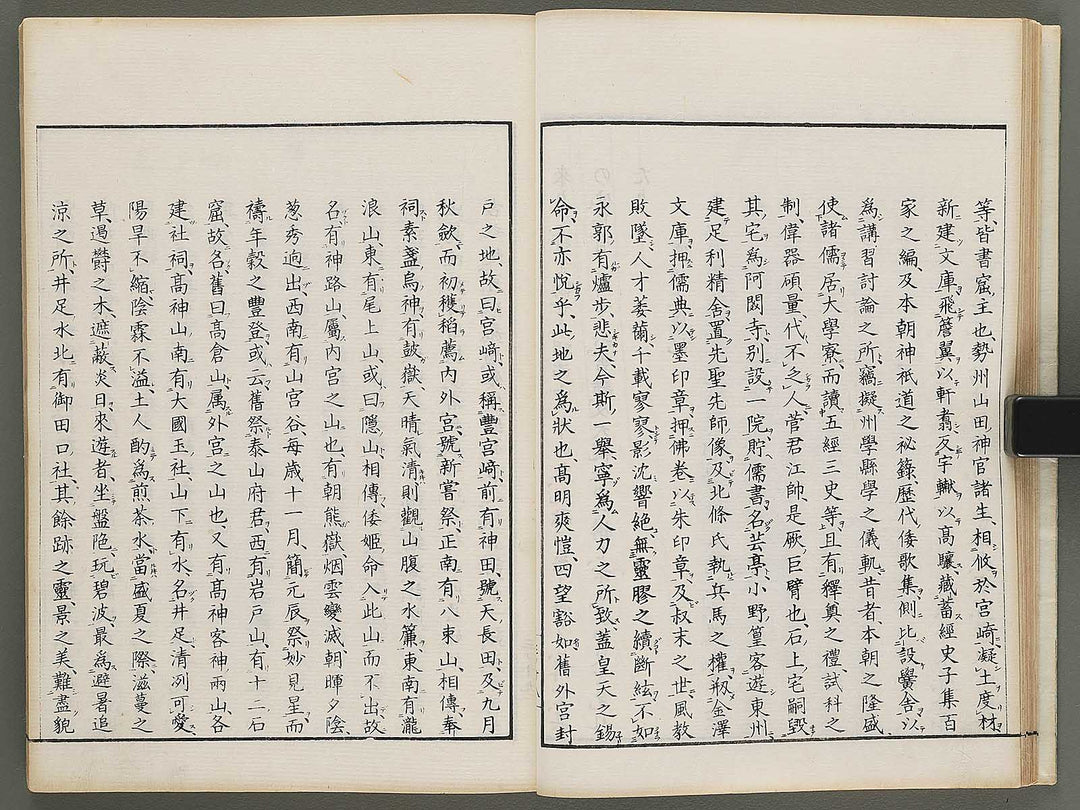 等、皆書窟主也、勢州山田神官諸生、相攸於宮崎、凝土度材
新建文庫、飛簷翼以軒翥、反宇轍以高驤、藏蓄經史子集百
家之編、及本朝神祇道之秘籙、歷代倭歌集、側比設黌舍、以
為講習討論之所、竊擬州學縣學之儀軌、昔者、本朝之隆盛
使諸儒居大學寮、而讀五經三史等、且有釋奠之禮、試科之
制、偉器碩量、代不之人、菅君江師、是厥巨臂也、石上宅嗣毀
其宅、為阿閦寺、別設一院、貯儒書、名芸亭、小野篁客遊東州
建足利精舍、置先聖先師像、及北條氏執兵馬之權、剏金澤
文庫、押儒典以墨印章、押佛卷以朱印章、及叔末之世、風教
敗墜、人才萎薾、千載寥寥、影沈響絕、無靈膠之續斷絃、不如
永郭有爐步、悲夫、今斯一舉、寧為人力之所致、蓋皇天之錫
命、不亦悅乎、此地之為狀也、高明爽愷、四望豁如、舊外宮封
戶之地、故曰宮崎、或稱豐宮崎、前有神田、號天長田、及九月
秋斂、而初穫稻薦內外宮、號新嘗祭、正南有八東山、相傳、奉
祠素盞烏神、有鼓嶽、天晴氣清則觀山腹之水簾、東南有瀧
浪山、東有尾上山、或曰隱山、相傳倭姬命入此山而不出故
名、有神路山、屬內宮之山也、有朝熊嶽、烟雲變滅、朝暉夕陰、
葱秀逈出、西南有山宮谷、每歲十一月、簡元辰、祭妙見星、而
禱年穀之豐登、或云舊祭泰山府君、西有岩戶山、有十二石
窟、故名、舊曰高倉山、属外宮之山也、又有高神客神兩山、各
建社祠、高神山、南有大國玉社、山下有水、名井足、清冽可愛、
陽旱不縮、陰霖不溢、土人酌為煎茶水、當盛夏之際、滋蔓之
草、遏欝之木、遮蔽炎日、來遊者、坐盤陁、玩碧波、最為避暑追
涼之所、井足水北有御田口社、其餘跡之靈、景之美、難盡貌